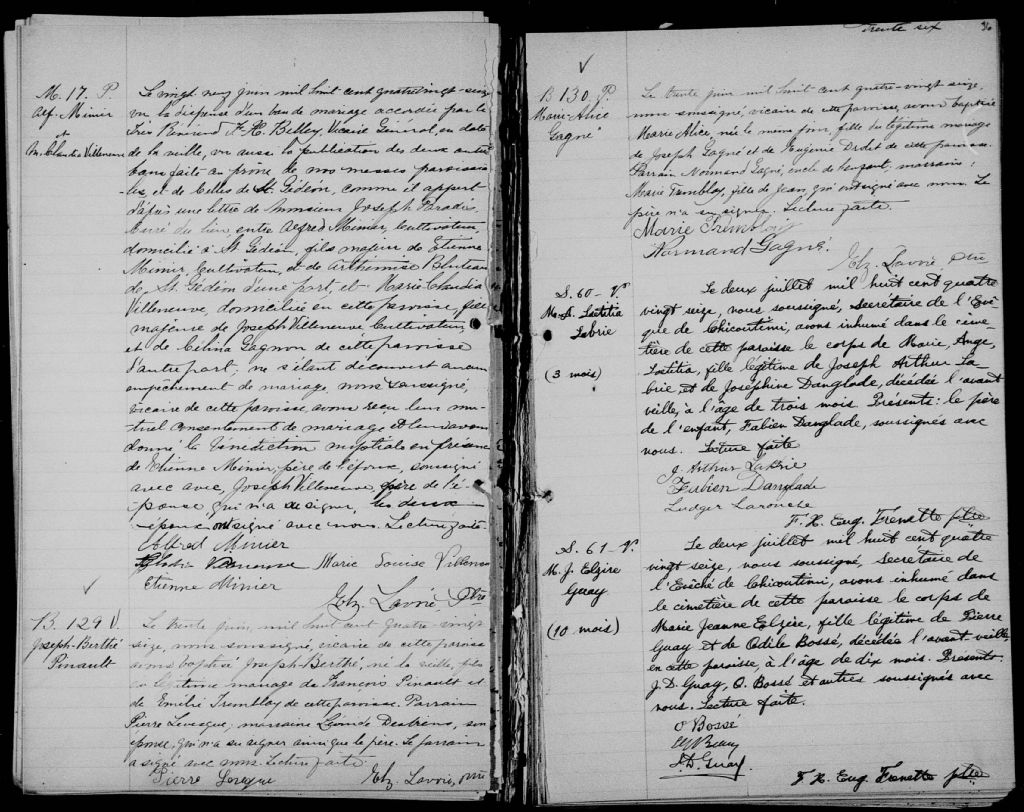 M. 17. P.
Alf. Minier
et
M. Claudia Villeneuve
Le vingt neuf juin mil huit cent quatre vingt seize
vu la dispense d'un ban de mariage accordée par le
Très Révérend F. H. Belley, Vicaire Général, en date
de la veille, vu aussi la publication des deux autres
bans faite au prône de nos messes paroissia-
les, et de celles de St. Gédéon, comme il appert
d'après une lettre de Monsieur Joseph Paradis,
curé du lieu entre Alfred Minier, Cultivateur,
domicilié à St. Gédéon, fils majeur de Etienne
Minier, Cultivateur, et de Arthémise Bluteau
de St. Gédéon d'une part, et Marie Claudia
Villeneuve, domiciliée en cette paroisse, fille
majeure de Joseph Villeneuve Cultivateur,
et de Célina Gagnon de cette paroisse
d'autre part, ne s'étant découvert aucun
empêchement de mariage, nous soussigné,
vicaire de cette paroisse, avons reçu leur mu-
tuel consentement de mariage et leur avons
donné la bénédiction nuptiale en présence
de Etienne Minier, père de l'époux, soussigné
avec avec, Joseph Villeneuve, père de l'é-
pouse, qui n'a su signer, les deux
époux ont signé avec nous. Lecture faite
Alfred Minier
Villeneuve Marie Louise Villeneuve
Etienne Minier
Elz. Lavoie, Ptre
B. 129 V.
Joseph-Berthé
Pinault
Le trente juin, mil huit cent quatre-vingt
seize, nous soussigné, vicaire de cette paroisse
avons baptisé Joseph-Berthé, né la veille, fils
du légitime mariage de François Pinault et
de Emilie Tremblay de cette paroisse. Parrain
Pierre Levesque, marraine Desbiens, son
épouse, qui n'a su signer ainsi que le père. Le parrain
a signé avec nous. Lecture faite.
Pierre Levesque
Elz. Lavoie, ptre
Trente six
36
B 130. P.
Marie-Alice
Gagné
Le trente juin mil huit cent quatre-vingt seize,
nous soussigné, vicaire de cette paroisse, avons baptisé
Marie Alice, née le même jour, fille du légitime mariage
de Joseph Gagné et de Eugénie Drolet de cette paroisse.
Parrain Normand Gagné, oncle de l'enfant, marraine,
Marie Tremblay, fille de Jean, qui ont signé avec nous. Le
père n'a su signer. Lecture faite.
Marie Tremblay
Normand Gagné.
Elz. Lavoie, Ptre
S. 60 - V.
M.-A. Laetitia
Labrie
(3 mois)
Le deux juillet mil huit cent quatre
vingt seize, nous soussigné, Secretaire de l'Evê-
que de Chicoutimi, avons inhumé dans le cime-
tière de cette paroisse le corps de Marie, Ange,
Laetitia, fille légitime de Joseph Arthur La
brie, et de Joséphine Danglade, décédée l'avant
veille, à l'âge de trois mois. Présents: le père
de l'enfant, Fabien Danglade, soussignés avec
nous. Lecture faite
J. Arthur LaBrie
Fabien Danglade
Ludger Larouche
F. X. Eug. Frenette ptre
S. 61 - V.
M. J. Elzire
Guay
(10 mois)
Le deux juillet mil huit cent quatre
vingt seize, nous soussigné, Secretaire de
l'Evêché de Chicoutimi, avons inhumé dans
le cimetière de cette paroisse le corps de
Marie Jeanne Eslzire, fille légitime de Pierre
Guay et de Odile Bossé, décédée l'avant veille,
en cette paroisse, à l'âge de dix mois. Presents
J. D. Guay, O. Bossé et autres soussignés avec
nous. Lecture faite.
O Bossé
Guay
J. D. Guay.
F. X. Eug. Frenette ptre